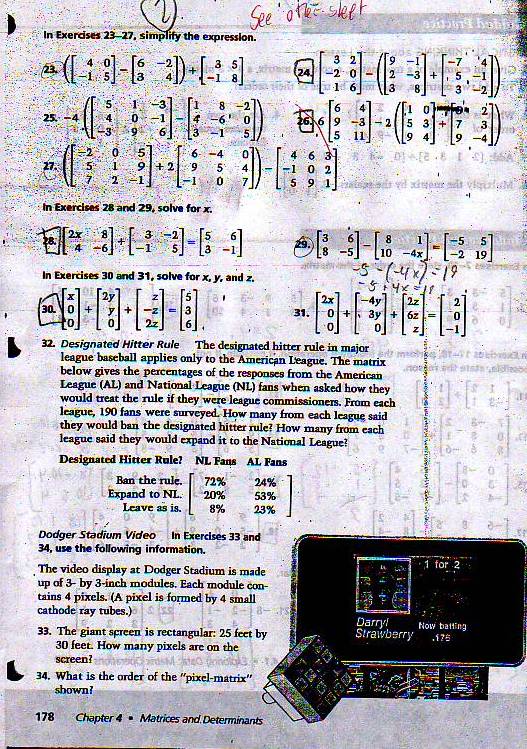 2
See other sheet
In Exercises 23–27, simplify the expression.
23. ([4 0; -1 5] - [6 -2; 3 4]) + [3 5; -1 8]
24. [3 2; -2 0; 1 6] - ([9 -1; -2 -3; 3 8] + [-7 4; 5 -1; -2])
25. -4([5 1 -3; 4 0 -1; -3 9 6] - [1 8 -2; 4 -6 0; 3 -1 5])
26. 6[6 4; 9 -3; 5 11] - 2([1 0; 5 3; 9 4] + [2; 7 3; 9 -4])
27. ([-2 0 5; 5 1 9; 7 2 -1] + 2[6 -4 0; 9 5 4; -1 0 7]) - [4 6 3; -1 0 2; 5 9 1]
In Exercises 28 and 29, solve for x.
28. [2x 8; 4 -6] + [3 -2; -1 5] = [5 6; 3 -1]
29. [3 6; 8 -5] - [8 1; 10 -4x] = [-5 5; -2 19]
-5 - (-4x) = 19
-5 + 4x = 19
In Exercises 30 and 31, solve for x, y, and z.
30. [x; 0; 0] + [2y; y; 0] + [z; -z; 2z] = [5; 3; 6]
31. [2x; 0; 0] + [-4y; 3y; 0] + [2z; 6z; z] = [2; 0; -1]
32. Designated Hitter Rule The designated hitter rule in major
league baseball applies only to the American League. The matrix
below gives the percentages of the responses from the American
League (AL) and National League (NL) fans when asked how they
would treat the rule if they were league commissioners. From each
league, 190 fans were surveyed. How many from each league said
they would ban the designated hitter rule? How many from each
league said they would expand it to the National League?
Designated Hitter Rule? NL Fans AL Fans
Ban the rule. 72% 24%
Expand to NL. 20% 53%
Leave as is. 8% 23%
Dodger Stadium Video In Exercises 33 and
34, use the following information.
The video display at Dodger Stadium is made
up of 3- by 3-inch modules. Each module con-
tains 4 pixels. (A pixel is formed by 4 small
cathode ray tubes.)
33. The giant screen is rectangular: 25 feet by
30 feet. How many pixels are on the
screen?
34. What is the order of the "pixel-matrix"
shown?
1 for 2
Darryl
Strawberry
Now batting
.175
178 Chapter 4 • Matrices and Determinants